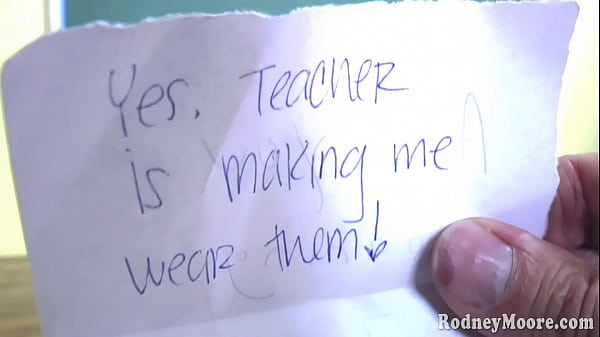 Yes. Teacher
is making me
wear them!
RodneyMoore.com